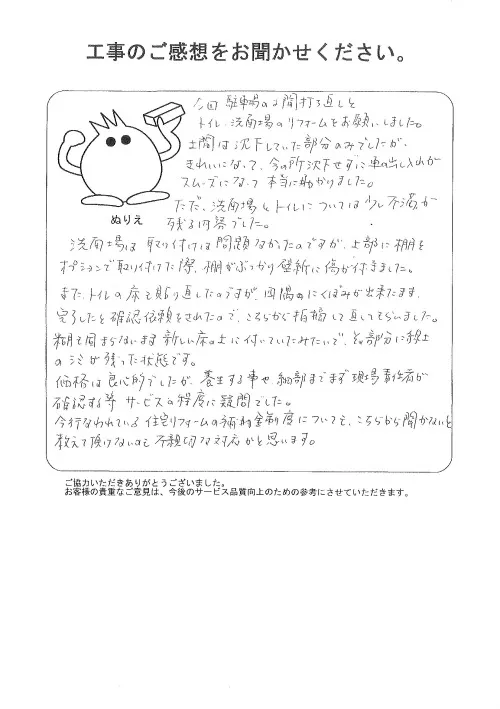 工事のご感想をお聞かせください。
今回 駐車場の土間打ち直しと
トイレ、洗面場のリフォームをお願いしました。
土間は沈下していた部分のみでしたが、
きれいになって、今の所沈下せずに車の出し入れが
スムーズになって本当に助かりました。
ただ、洗面場とトイレについては少し不満が
残る内容でした。
ぬりえ
洗面場は取り付けは問題なかったのですが、上部に棚を
オプションで取り付けた際、棚がぶつかり壁紙に傷が付きました。
また、トイレの床も貼り直したのですが、四隅にくぼみが出来たまま、
完了したと確認依頼をされたので、こちらから指摘して直してもらいました。
糊も固まらないまま新しい床の上に付いていたみたいで、その部分に
のシミが残った状態です。
価格は良心的でしたが、養生する事や、細部まで まず現場責任者が
確認する等 サービスの程度に疑問でした。
今行なわれている住宅リフォームの補助金制度についても、こちらから聞かないと
教えて頂けないのも不親切な対応かと思います。
ご協力いただきありがとうございました。
お客様の貴重なご意見は、今後のサービス品質向上のための参考にさせていただきます。